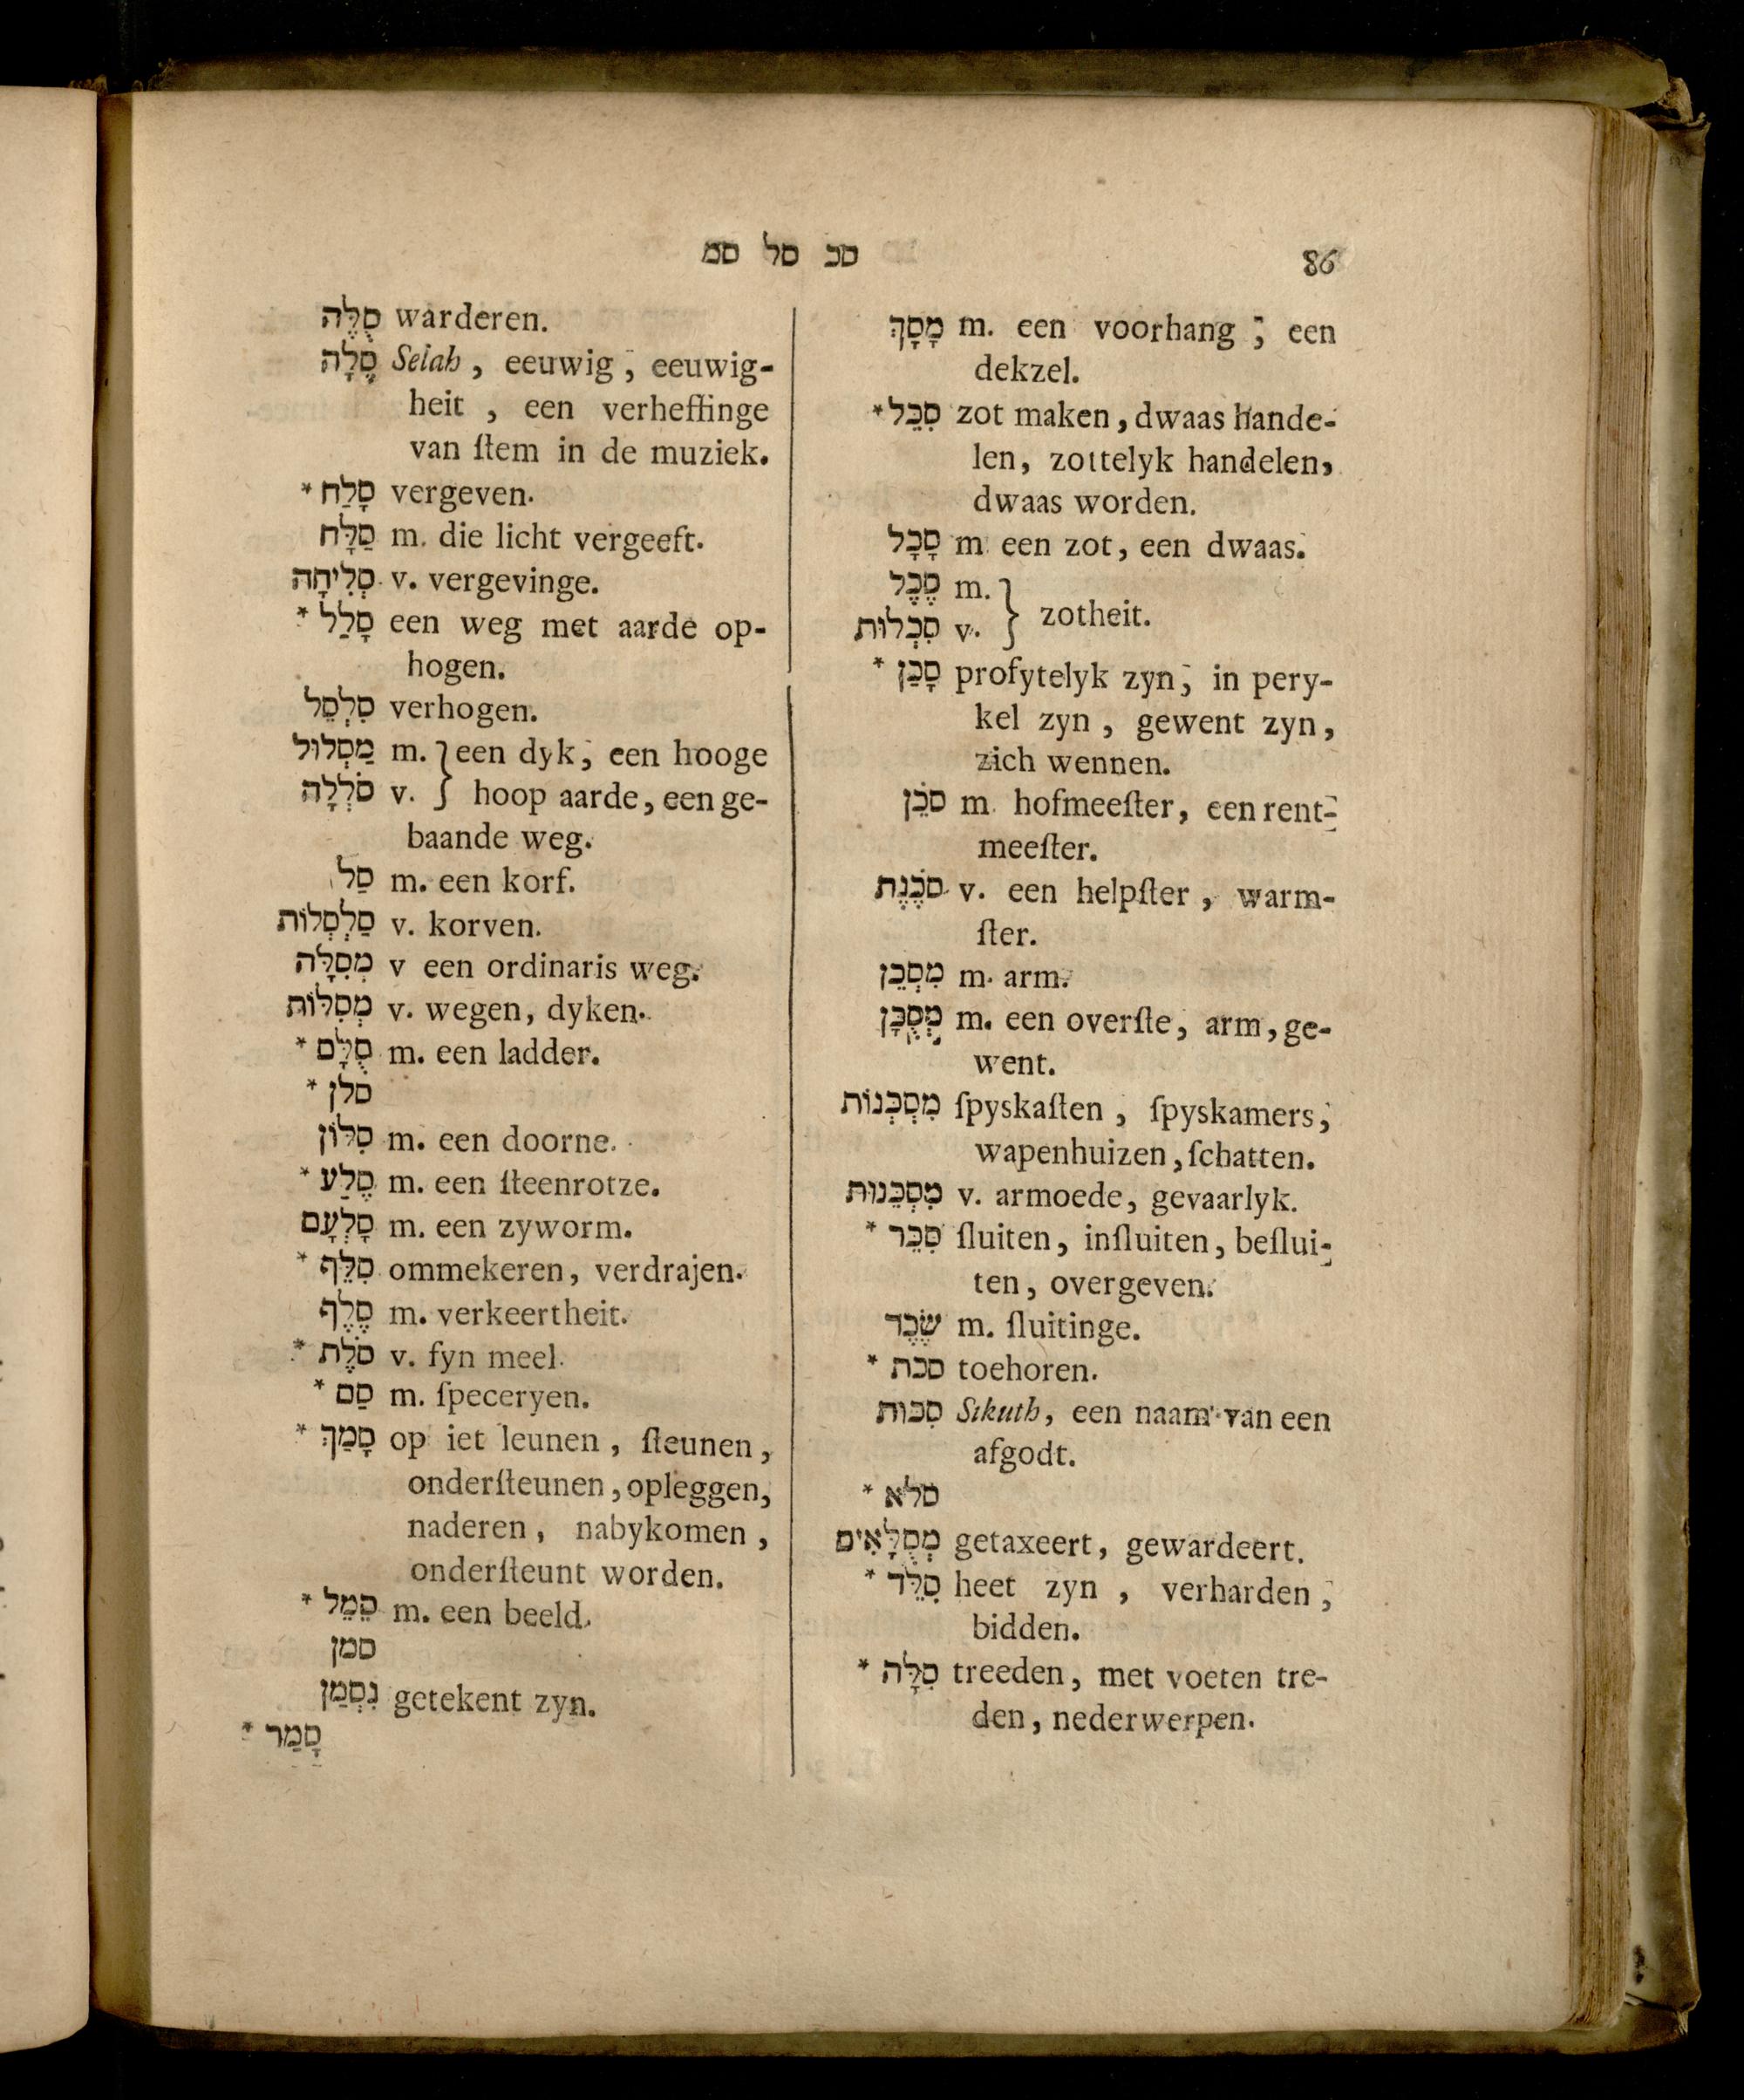 סכ סל סמ
86
מָסָךְ m. een voorhang, een
dekzel.
* סִכֵּל zot maken, dwaas hande-
len, zottelyk handelen,
dwaas worden.
סָכָל m. een zot, een dwaas.
סֶכֶל m. } zotheit.
סִכְלוּת v.
* סָכַן profytelyk zyn, in pery-
kel zyn, gewent zyn,
zich wennen.
סֹכֵן m. hofmeeſter, een rent-
meeſter.
סֹכֶנֶת v. een helpſter, warm-
ſter.
מִסְכֵּן m. arm.
מְסֻכָּן m. een overſte, arm, ge-
went.
מִסְכְּנוֹת ſpyskaſten, ſpyskamers,
wapenhuizen, ſchatten.
מִסְכֵּנוּת v. armoede, gevaarlyk.
* סִכֵּר ſluiten, inſluiten, beſlui-
ten, overgeven.
שֶׂכֶר m. ſluitinge.
* סכת toehoren.
סִכּוּת Sikuth, een naam van een
afgodt.
* סלא
מְסֻלָּאִים getaxeert, gewardeert.
* סִלֵּד heet zyn, verharden,
bidden.
* סִלָּה treeden, met voeten tre-
den, nederwerpen.
סֻלֶּה warderen.
סֶלָה Selah, eeuwig, eeuwig-
heit, een verheffinge
van ſtem in de muziek.
* סָלַח vergeven.
סַלָּח m. die licht vergeeft.
סְלִיחָה v. vergevinge.
* סָלַל een weg met aarde op-
hogen.
סִלְסֵל verhogen.
מַסְלוּל m. } een dyk, een hooge
סֹלְלָה v. hoop aarde, een ge-
baande weg.
סַל m. een korf.
סַלְסְלוֹת v. korven.
מְסִלָּה v een ordinaris weg.
מְסִלּוֹת v. wegen, dyken.
* סֻלָּם m. een ladder.
* סלן
סִלּוֹן m. een doorne.
* סֶלַע m. een ſteenrotze.
סָלְעָם m. een zyworm.
* סִלֵּף ommekeren, verdrajen.
סֶלֶף m. verkeertheit.
* סֹלֶת v. fyn meel.
* סַם m. ſpeceryen.
* סָמַךְ op iet leunen, ſteunen,
onderſteunen, opleggen,
naderen, nabykomen,
onderſteunt worden.
* סֵמֶל m. een beeld.
סמן
נִסְמַן getekent zyn.
* סָמַר